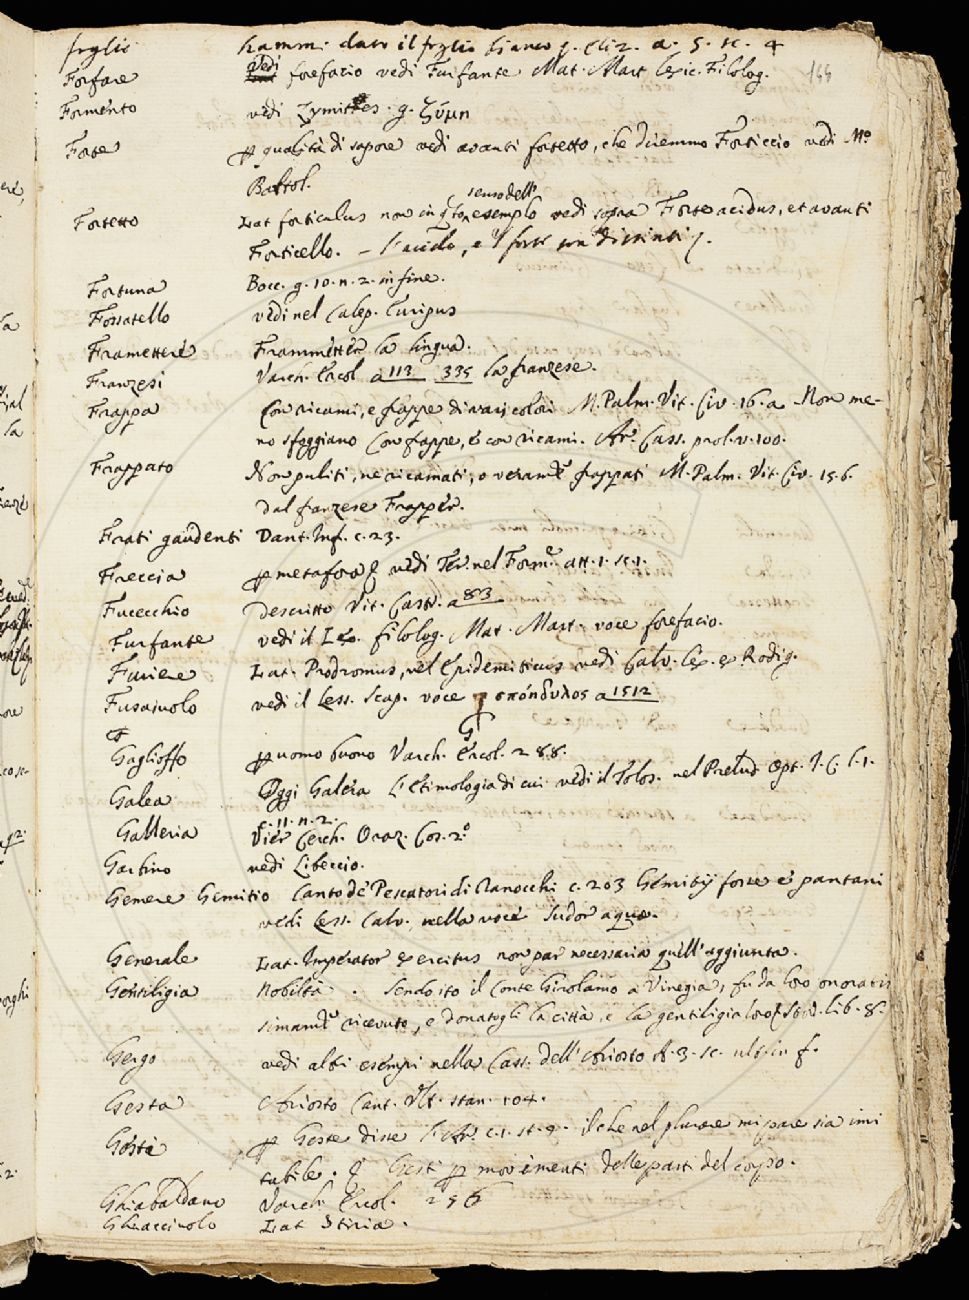 foglio hammi dato il foglio bianco g. Cliz. a. 5. sc. 4
144
Forfare vedi forefacio vedi Furfante Mat. Mart. Lexic. Filolog.
Formento vedi Zymites. g. ζύμη
Forte p qualità di sapore vedi avanti fortetto, che diremmo Forticcio vedi Mo.
Bartol.
senso dell'
Fortetto Lat. forticulus non in esemplo vedi sopra Forte acidus, et avanti
Forticello. – l'acido, e 'l forte son distinti
Fortuna Bocc. g. 10. n. 2. in fine.
Fossatello vedi nel Calep. Euripus
Framettere Frammetter la lingua.
Franzesi Varch. Ercol. a 113 335 la franzese.
Frappa Con ricami, e frappe di varj colori M. Palm. Vit. Civ. 16. a Non me-
no sfoggiano Con frappe, e con ricami. Ar. Cass. prol. v. 100.
Frappato Non puliti, ne ricamati, o veramte frappati M. Palm. Vit. Civ. 15. 6.
dal franzese Frapper.
Frati gaudenti Dant. Inf. c. 23.
Freccia p metafora vedi Ter. nel Form. att. 1. sc. 1.
Fucecchio Descritto Vit. Castr. a 83
Furfante vedi il Les. filolog. Mat. Mart. voce forefacio.
Furiere Lat. Prodromus, vel Epidemiticus vedi Calv. Lex. ex Rodig.
Fusaiuolo vedi il Less. Scap. voce σπόνδυλος a 1512
G
Gaglioffo p uomo buono Varch. Ercol. 288.
Galea Oggi Galera L'etimologia di cui vedi il Tolos. nel Prelud. Opt. J. C. l. 1.
c. 11. n. 2.
Galleria Vier Cerch. Oraz. Cos. 2o
Garbino vedi Libeccio.
Gemere Gemitio Canto de' Pescatori di Ranocchi c. 203 Gemitij forse è pantani
vedi Less. Calv. nella voce Sudor aquae.
Generale Lat. Imperator exercitus non par necessaria quell'aggiunta.
Gentiligia Nobiltà. Sendo ito il Conte Girolamo a Vinegia, fu da loro onoratis
simamte ricevuto, e donatogli la città, e la gentiligia loro lib. 8.
Gergo vedi altri esempi nella Cass. dell'Ariosto A. 3. sc. ult. in f.
Gesta Ariosto Cant. Ult. stan. 104.
Gesta p Geste disse l'Ar. c. 1. st. 9. il che nel plurare mi pare sia imi
tabile. Gesti p movimenti delle parti del corpo.
Ghiabaldano Varch. Ercol. 256
Ghiacciuolo Lat. Stiria.